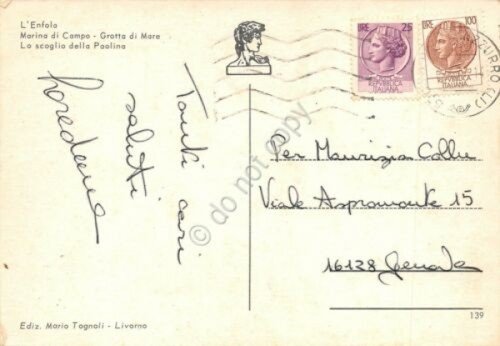 L'Enfola
Marina di Campo - Grotta di Mare
Lo scoglio della Paolina
LIRE 25
REPUBBLICA
ITALIANA
LIRE 100
REPUBBLICA
ITALIANA
Tanti cari
saluti
Loredana
do not copy
Per Maurizia Collu
Viale Aspromonte 15
16128 Genova
139
Ediz. Mario Tognoli - Livorno